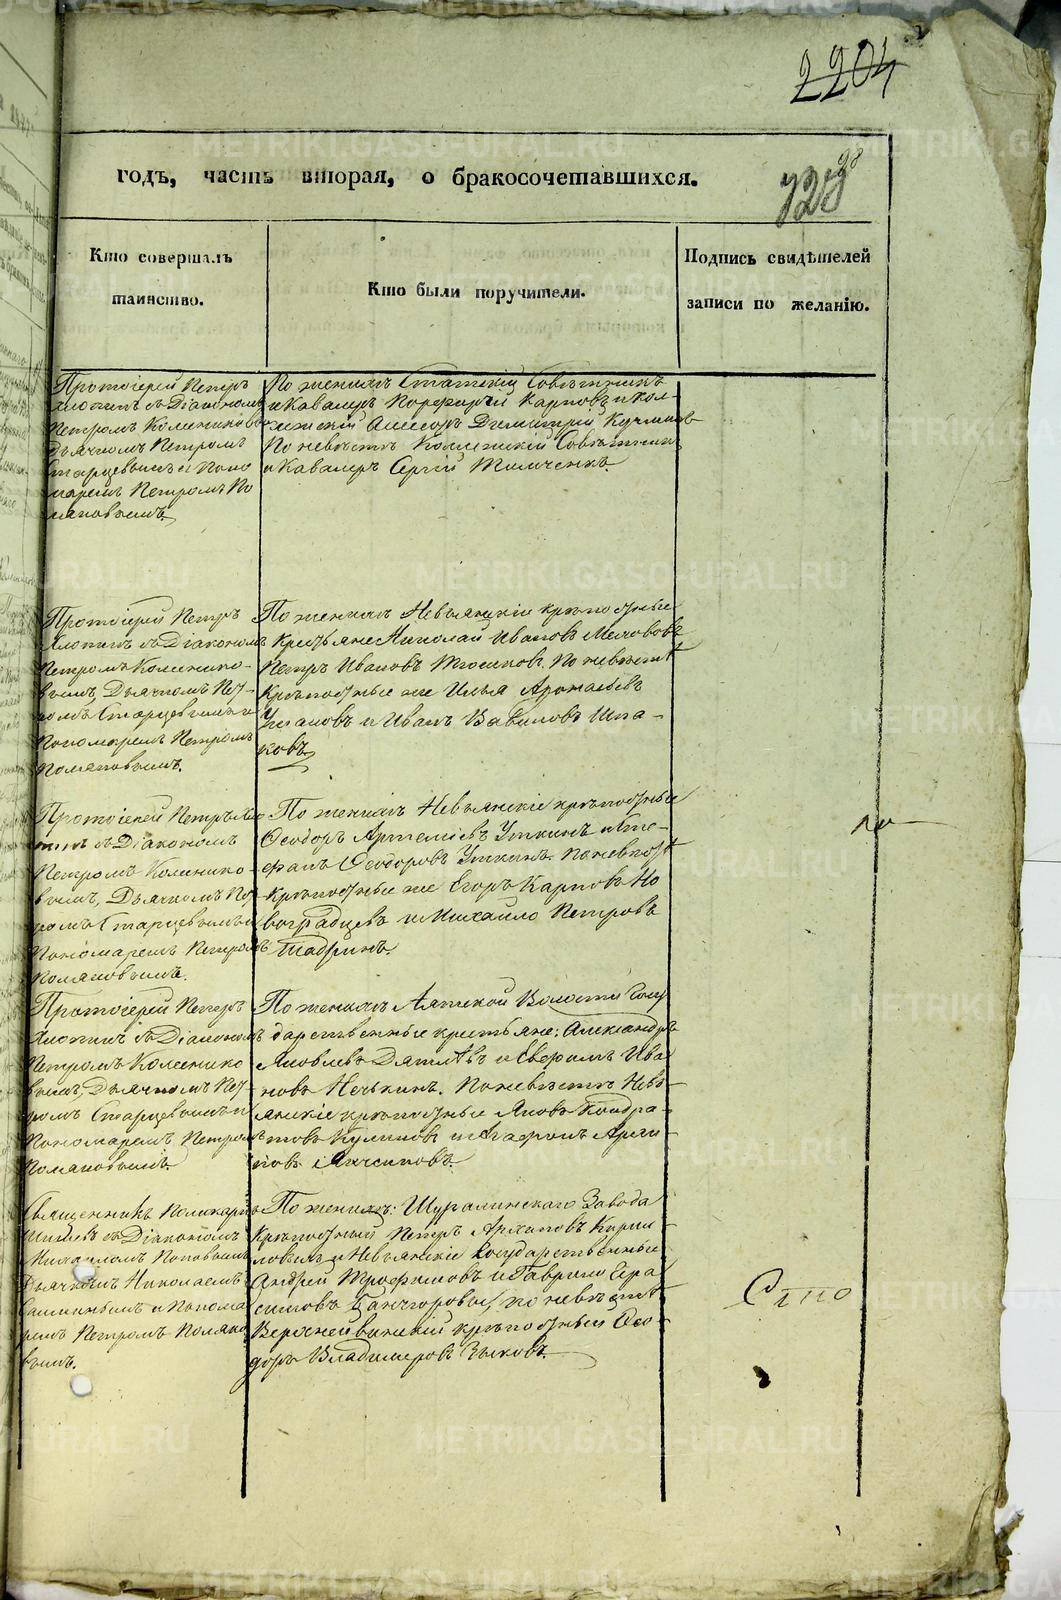 2204
98
годъ, часть вторая, о бракосочетавшихся.
Кто совершалъ
таинство.
Кто были поручители.
Подпись свидѣтелей
записи по желанію.
Протоіерей Петръ
Хлопинъ съ Діакономъ
Петромъ Колесниковымъ
Дьячкомъ Петромъ
Старцевымъ и Поно
маремъ Петромъ По
ляковымъ
По женихѣ Статскій Совѣтникъ
и Кавалеръ Порфирій Карповъ и Кол-
лежскій Асессоръ Димитрій
По невѣстѣ Коллежскій Совѣтникъ
и Кавалеръ Сергій Тимченкъ.
Протоіерей Петръ
Хлопинъ съ Діакономъ
Петромъ Колеснико-
вымъ, Дьячкомъ Пет-
ромъ Старцевымъ и
Пономаремъ Петромъ
Поляковымъ.
По женихѣ Невьянскіе крѣпостные
Крестьяне Николай Ивановъ
Петръ Ивановъ. По невѣстѣ
Крѣпостные же Илья
и Иванъ Вавиловъ Шпа-
ковъ
Протоіерей Петръ Хло
пинъ съ Діакономъ
Петромъ Колеснико-
вымъ, Дьячкомъ Пет
ромъ Старцевымъ и
Пономаремъ Петромъ
Поляковымъ.
По женихѣ Невьянскіе крѣпостные
Ѳеодоръ Артеміевъ Уткинъ и Сте-
фанъ Ѳеодоровъ Уткинъ. По невѣстѣ
Крѣпостные же Егоръ Карповъ Но
воградцевъ и Михайло Петровъ
Шадринъ.
Протоіерей Петръ
Хлопинъ съ Діакономъ
Петромъ Колеснико
вымъ, Дьячкомъ Пет
ромъ Старцевымъ и
Пономаремъ Петромъ
Поляковымъ
По женихѣ Аятской Волости Госу
дарственные крестьяне: Александръ
Яковлевъ Дятлѣвъ и Ефимъ Ива
новъ Нечкинъ. По невѣстѣ Невь-
янскіе крѣпостные Яковъ Кондра-
товъ Куликовъ и Агафонъ Архи-
повъ
Священникъ Поликарпъ
съ Діакономъ
Михаиломъ Поповымъ
Дьячкомъ Николаемъ
и Понома
ремъ Петромъ Поляко
вымъ.
По женихѣ: Шуралинскаго Завода
Крѣпостный Петръ Архиповъ Кирил-
ловыхъ и Невьянскіе Государственные
Андрей Трофимовъ и Гаврило Гера
симовъ по невѣстѣ
Верхнейвинскій крѣпостный Ѳео-
доръ Владимеровъ Зыковъ.
Сто
METRIKI.GASO-URAL.RU